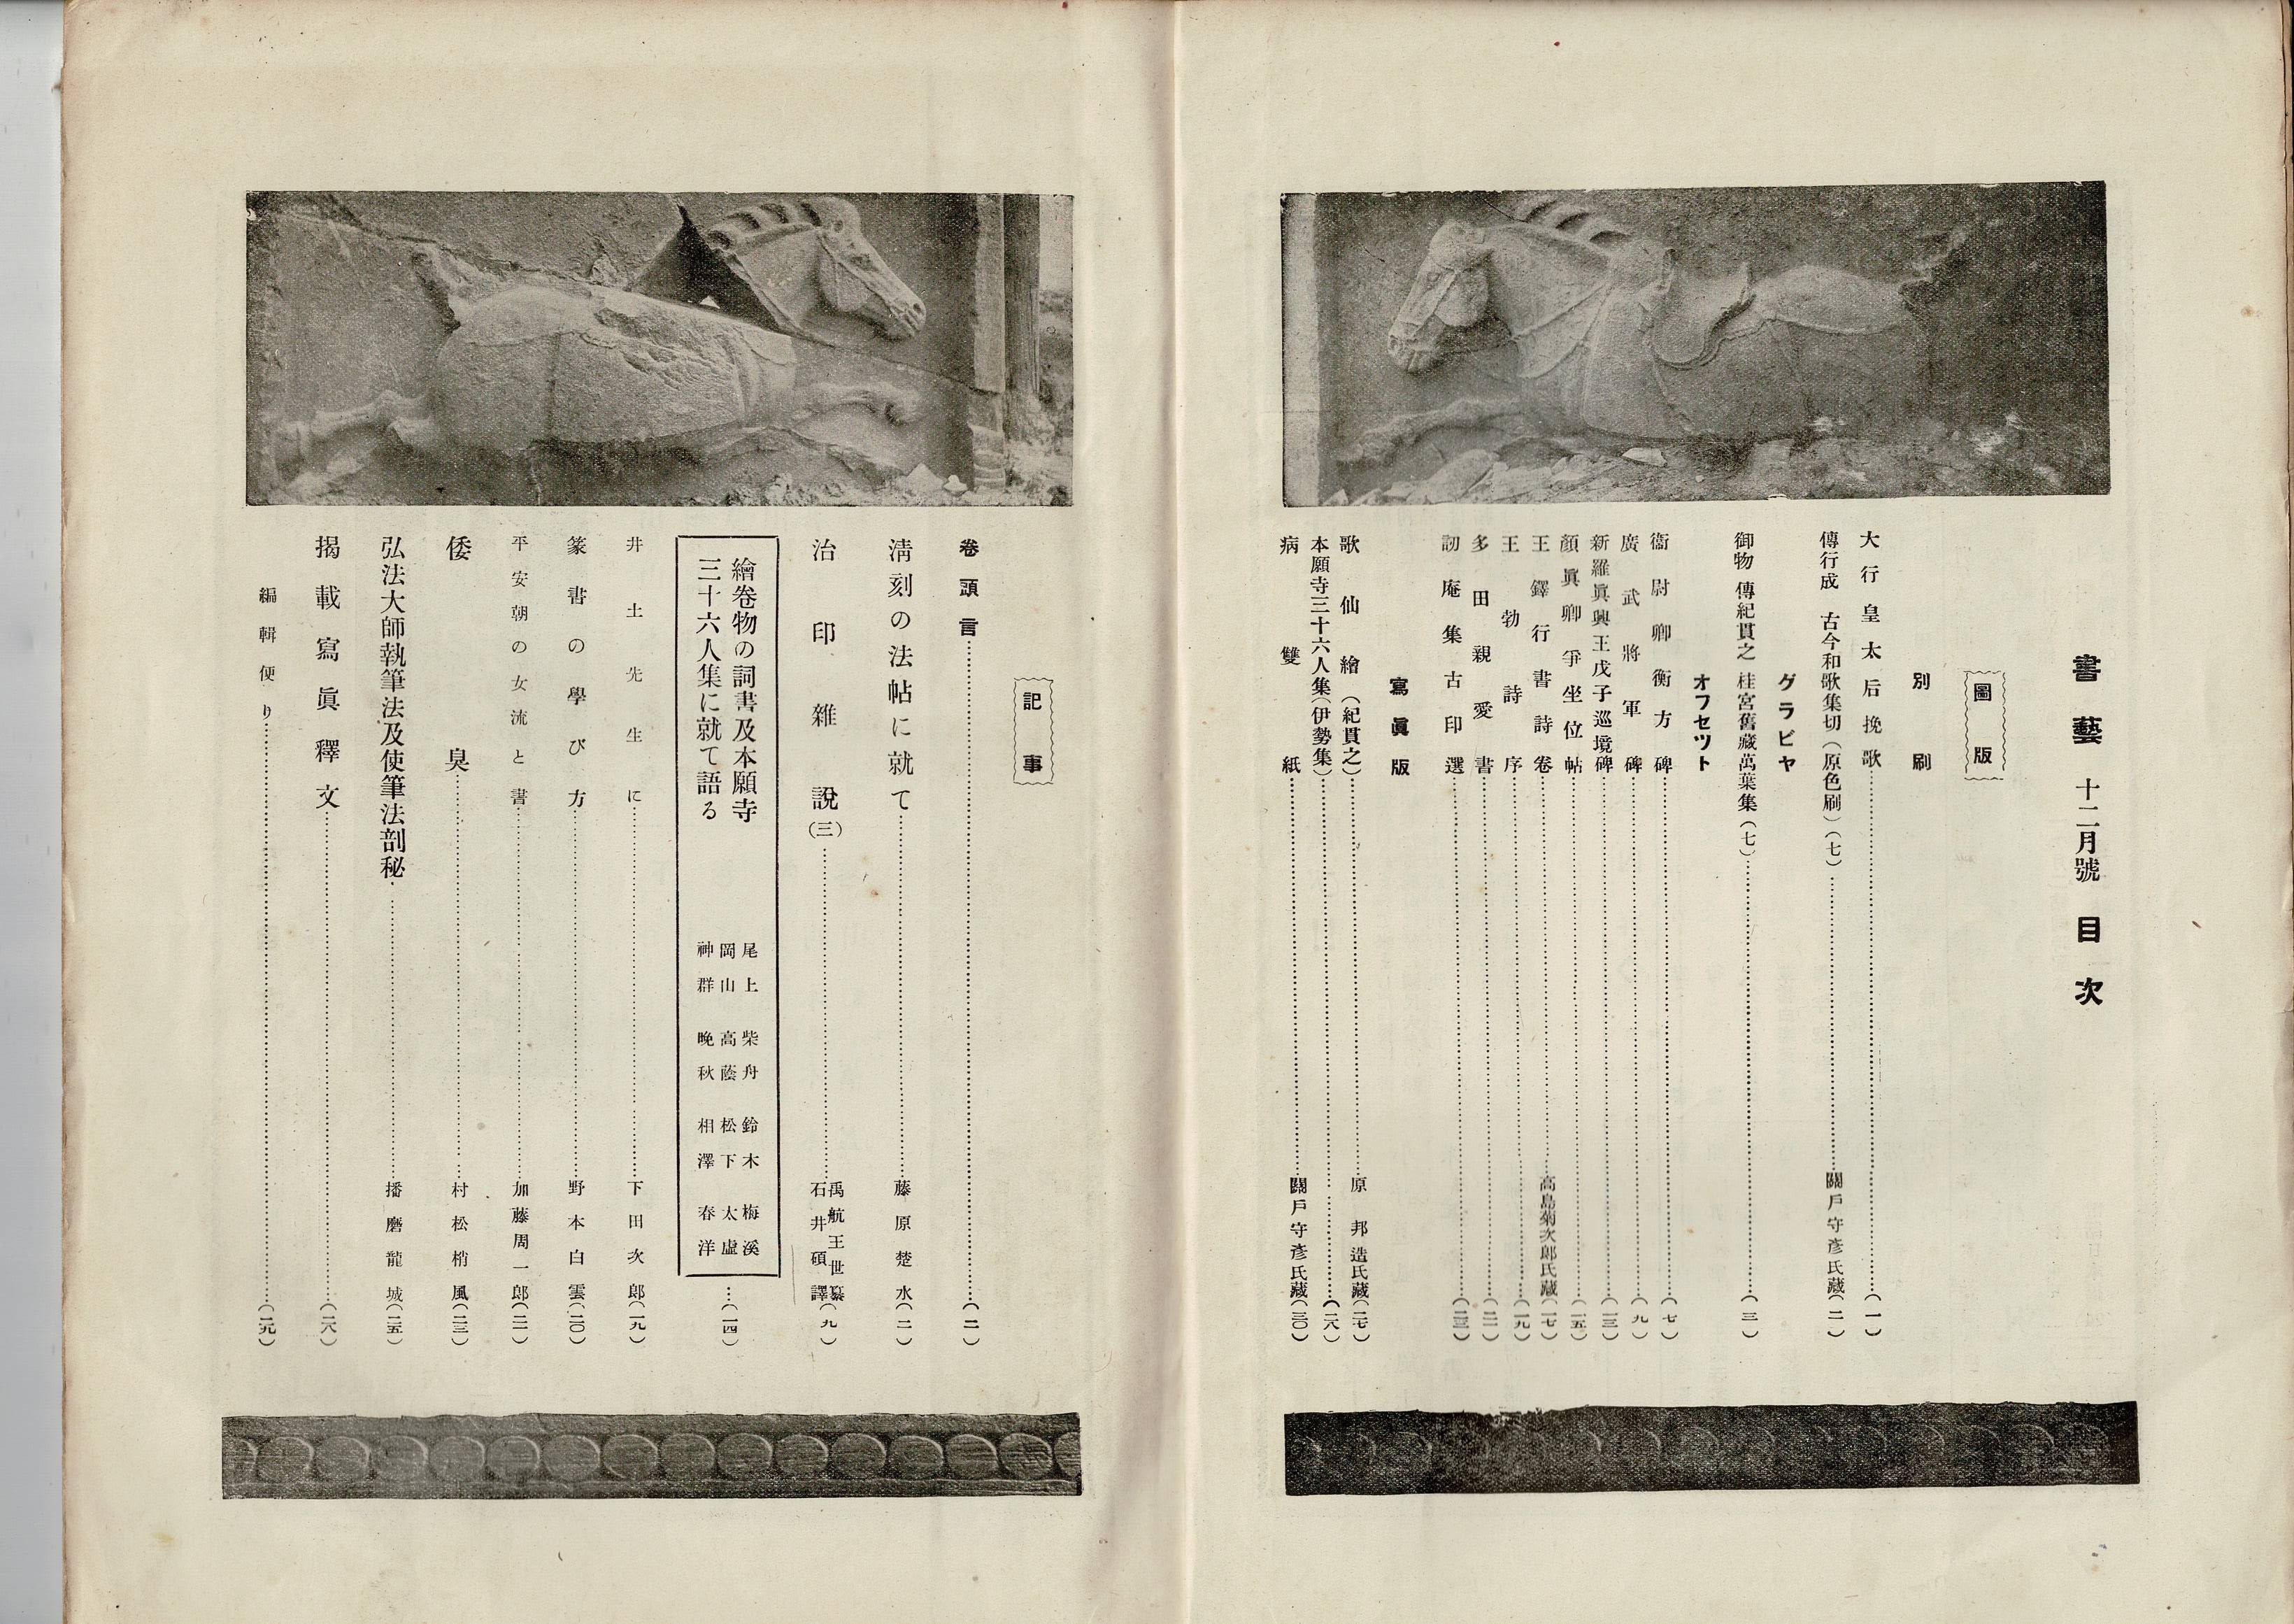 書藝 十二月號 目次
圖版
別刷
大行皇太后挽歌……(一)
傳行成 古今和歌集切(原色刷)(七)……關戶守彥氏藏(二)
グラビヤ
御物 傳紀貫之 桂宮舊藏萬葉集(七)……(三)
オフセツト
衞尉卿衡方碑……(七)
廣武將軍碑……(九)
新羅眞興王戊子巡境碑……(一三)
顏眞卿爭坐位帖……(一五)
王鐸行書詩卷……高島菊次郎氏藏(一七)
王勃詩序……(一九)
多田親愛書……(二一)
訒庵集古印選……(二三)
寫眞版
歌仙繪(紀貫之)……原邦造氏藏(二七)
本願寺三十六人集(伊勢集)……(二八)
病雙紙……關戶守彥氏藏(三〇)
記事
卷頭言……(二)
淸刻の法帖に就て……藤原楚水(二)
治印雜說(三)……禹航王世纂 石井碩譯(九)
繪卷物の詞書及本願寺
三十六人集に就て語る
尾上柴舟 鈴木梅溪
岡山高蔭 松下太虛
神群晚秋 相澤春洋
……(一四)
井土先生に……下田次郞(一九)
篆書の學び方……野本白雲(二〇)
平安朝の女流と書……加藤周一郞(二一)
倭臭……村松梢風(二三)
弘法大師執筆法及使筆法剖秘……播磨龍城(二五)
揭載寫眞釋文……(二八)
編輯便り……(二九)